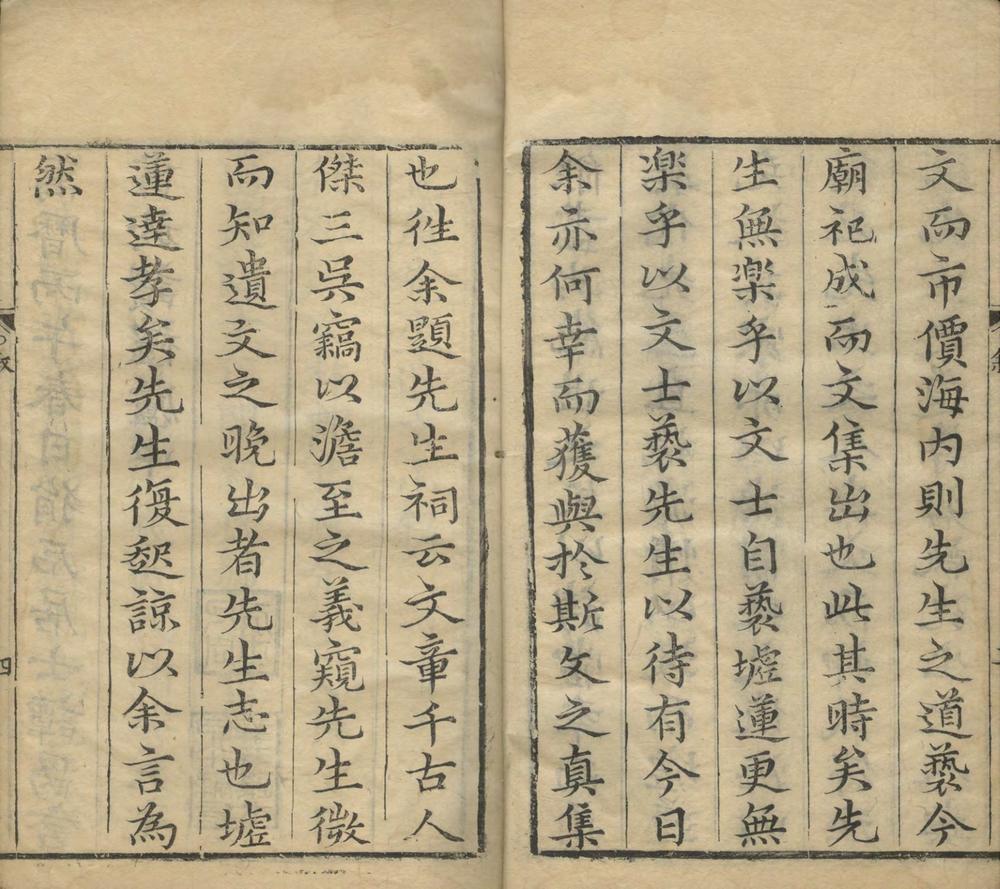 文而市價海内則先生之道褻今
廟祀成而文集出也此其時矣先
生無楽乎以文士自褻墟蓮更無
楽乎以文士褻先生以待有今日
余亦何幸而獲與於斯文之真集
也徃余題先生祠云文章千古人
傑三吳竊以澹至之義窺先生微
而知遺文之晚出者先生志也墟
蓮達孝矣先生復起諒以余言為
然
四